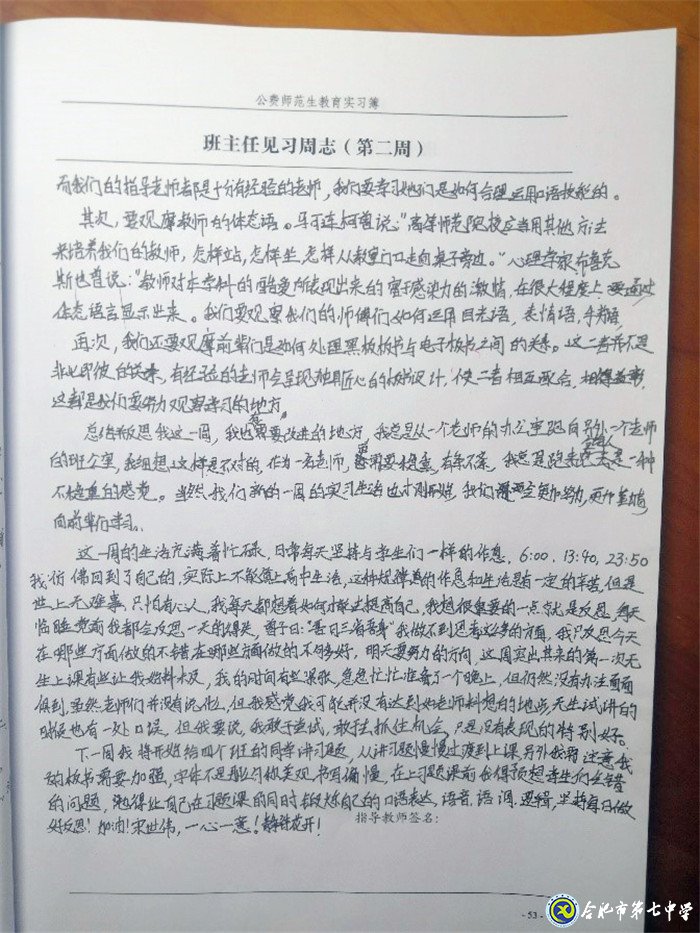 公费师范生教育实习簿
班主任见习周志（第二周）
而我们的指导老师都是十分有经验的老师，我们要学习她们是如何合理运用口语技能的。
其次，要观摩教师的体态语。马可连柯曾说："高等师范院校应当用其他方法
来培养我们的教师，怎样站，怎样坐，怎样从教室门口走向桌子旁边。"心理学家布鲁克
斯也曾说："教师对本学科的酷爱所表现出来的富于感染力的激情，在很大程度上要通过
体态语言显示出来。我们要观察我们的师傅们如何运用目光语，表情语，手势语
再次，我们还要观摩前辈们是如何处理黑板板书与电子板书之间的关系。这二者并不是
非此即彼的关系，有经验的老师会呈现独具匠心的板书设计，使二者相互融合，相得益彰，
这都是我们要努力观察学习的地方。
总结反思我这一周，我也有需要改进的地方，我总是从一个老师的办公室跑向另外一个老师
的办公室，我细想这样是不对的，作为一名老师，更需要稳重，有条不紊，我总是跑来跑去给人一种
不稳重的感觉。当然我们新的一周的实习生活也才刚开始，我们要更加努力，更加
向前辈们学习。
这一周的生活充满着忙碌，日常每天坚持与学生们一样的作息，6:00，13:40，23:50
我仿佛回到了自己的，实际上不能算上高中生活，这种规律的作息和生活是有一定的辛苦，但是
世上无难事，只怕有心人，我每天都想着如何才能去提高自己，我想很重要的一点就是反思，每天
临睡觉前我都会反思一天的得失，曾子曰："吾日三省吾身"我做不到思考这么多的方面，我只反思今天
在哪些方面做的不错，在哪些方面做的不够好，明天要努力的方向，这周突出其来的第一次无
生上课有些让我始料未及，我的时间有些紧张，急急忙忙准备了一个晚上，但仍然没有办法面面
俱到，虽然老师们并没有说什么，但我感觉我可能并没有达到如老师料想的地步，无生试讲的
时候也有一处口误，但我要说，我敢于尝试，敢于去抓住机会，只是没有表现的特别好。
下一周我将开始给四个班的同学讲习题，从讲习题慢慢过渡到上课，另外我将注意我
的板书需要加强，字体不是那么的美观，书写偏慢，在上习题课前我得预想学生们会错
的问题，也得让自己在习题课的同时锻炼自己的口语表达，语音，语调，逻辑，坚持每日做
好反思！加油！宋世伟，一心一意！静待花开！
指导教师签名：
- 53 -
合肥市第七中学